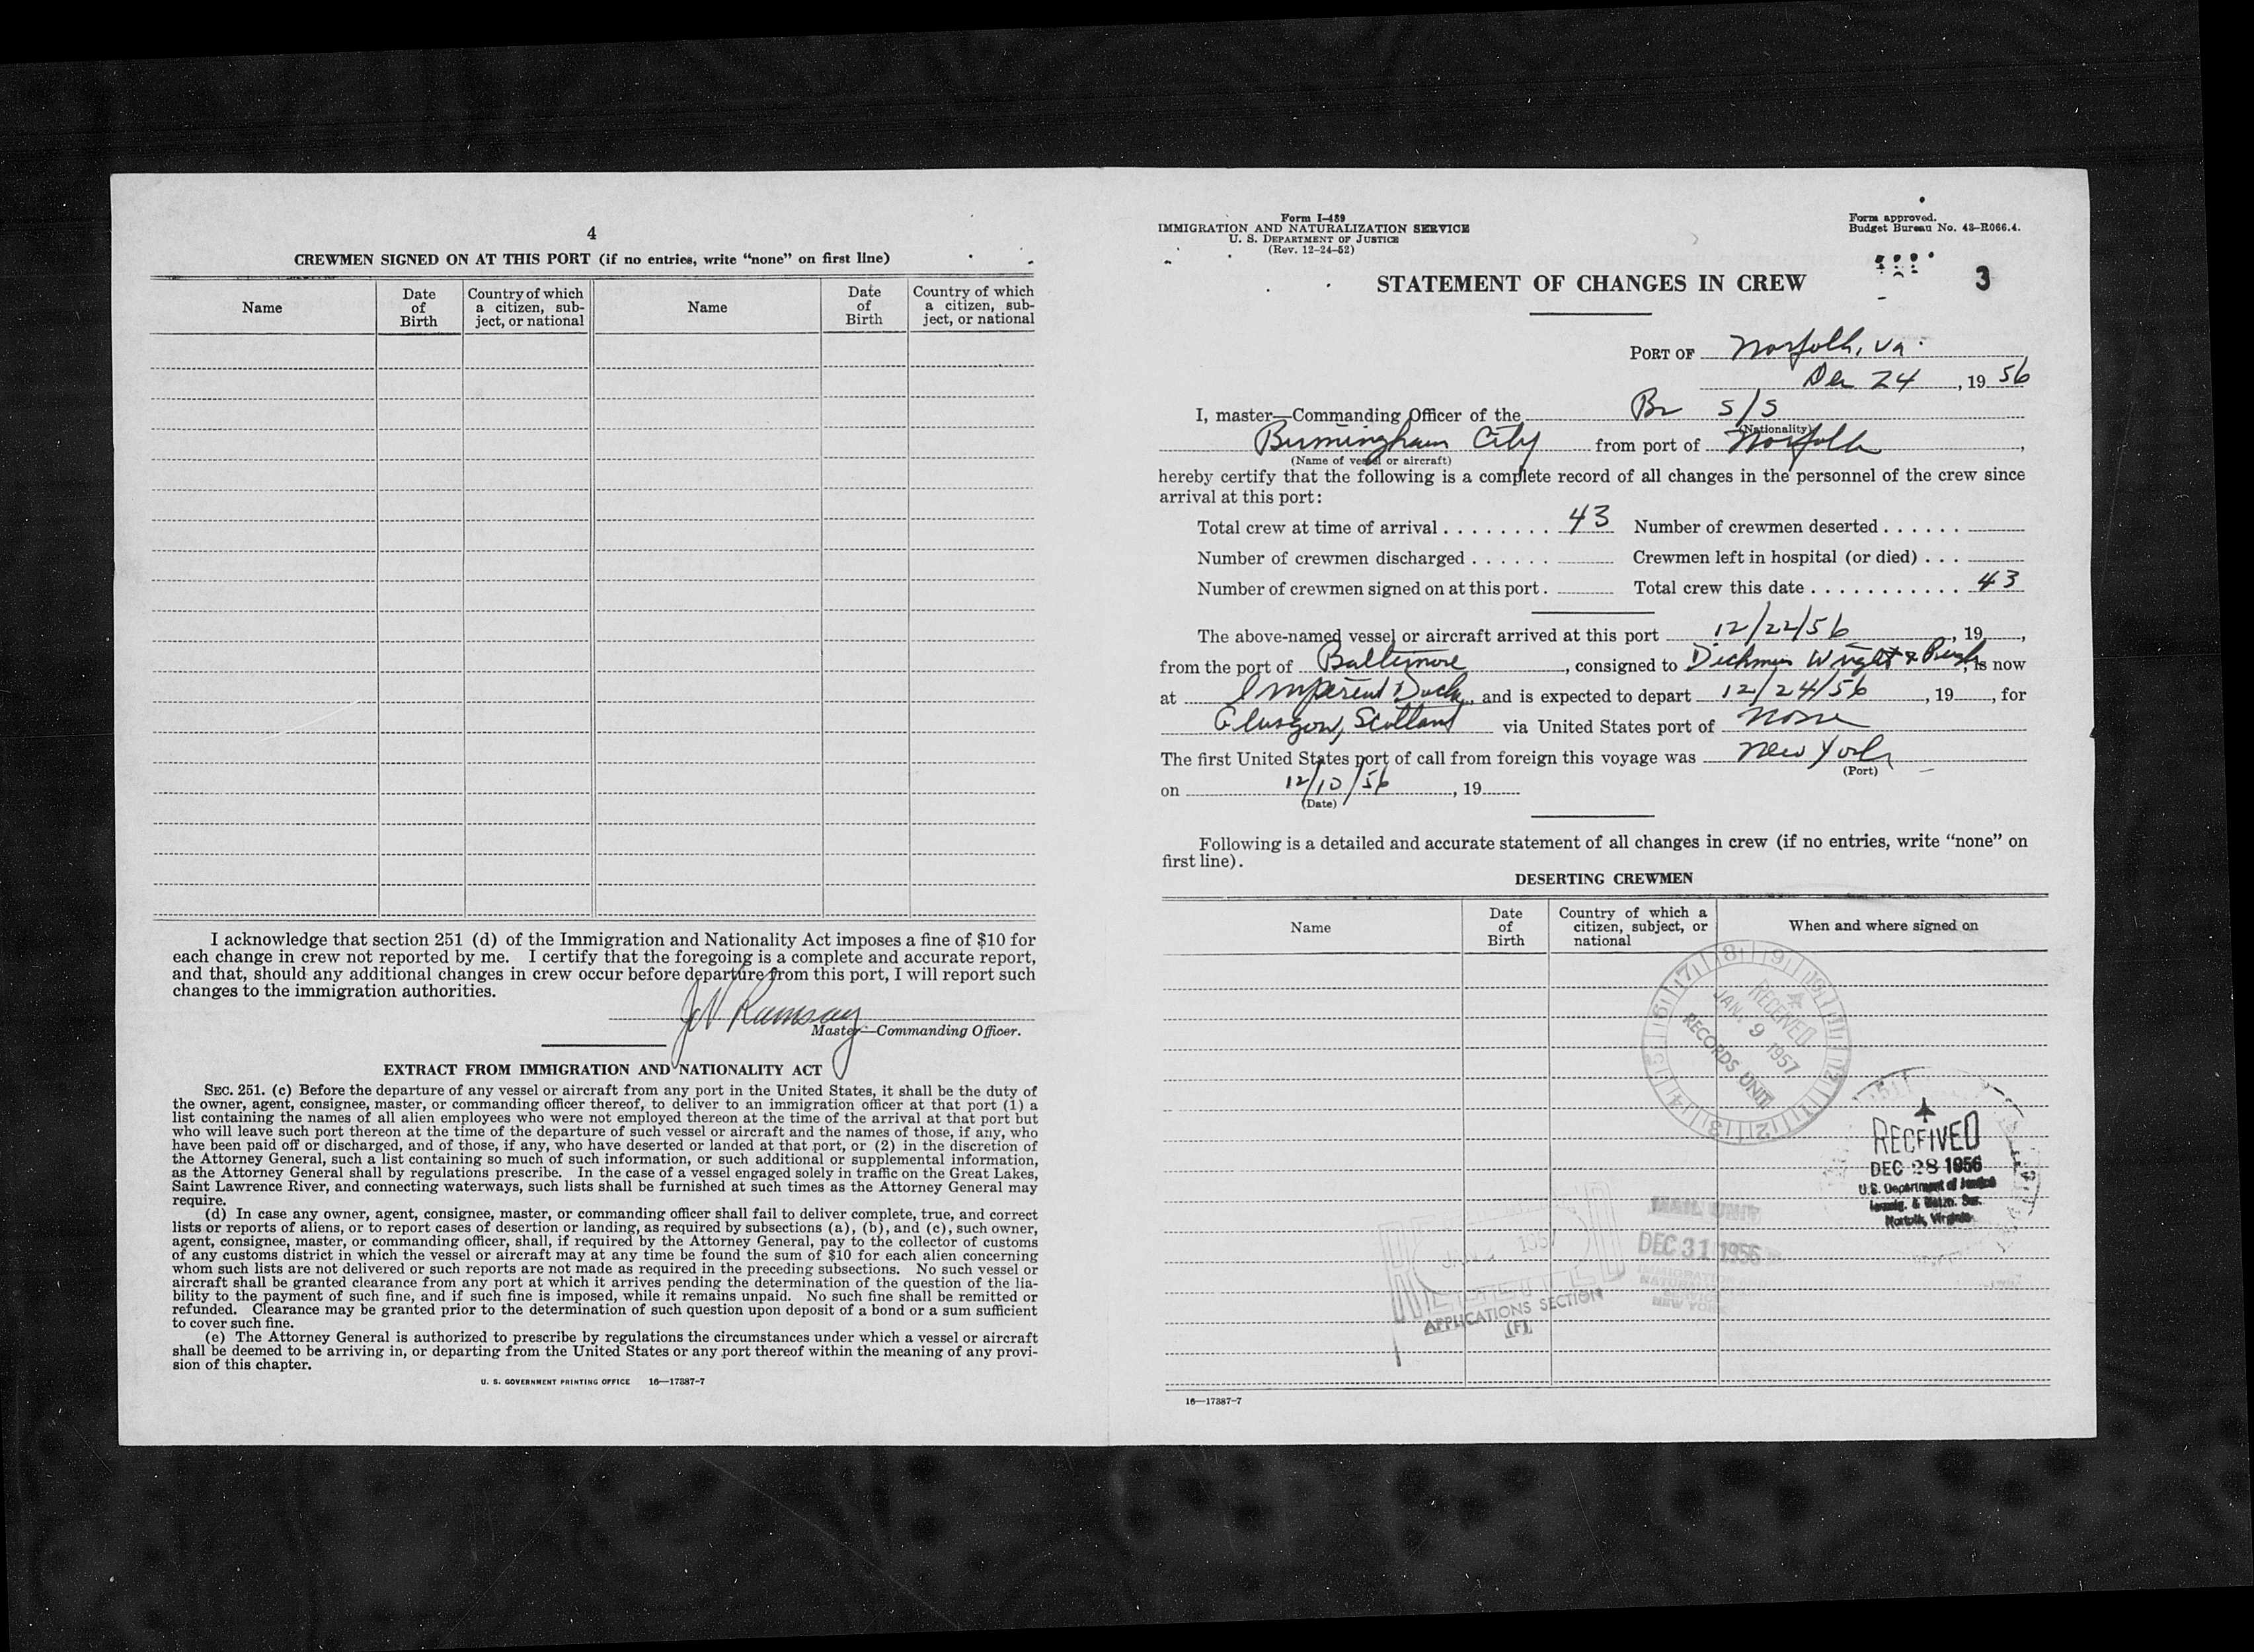 4
CREWMEN SIGNED ON AT THIS PORT (if no entries, write “none” on first line)
Name
Date of Birth
Country of which a citizen, subject, or national
Name
Date of Birth
Country of which a citizen, subject, or national
I acknowledge that section 251 (d) of the Immigration and Nationality Act imposes a fine of $10 for
each change in crew not reported by me. I certify that the foregoing is a complete and accurate report,
and that, should any additional changes in crew occur before departure from this port, I will report such
changes to the immigration authorities.
Ramsay
Master—Commanding Officer.
EXTRACT FROM IMMIGRATION AND NATIONALITY ACT
SEC. 251. (c) Before the departure of any vessel or aircraft from any port in the United States, it shall be the duty of
the owner, agent, consignee, master, or commanding officer thereof, to deliver to an immigration officer at that port (1) a
list containing the names of all alien employees who were not employed thereon at the time of the arrival at that port but
who will leave such port thereon at the time of the departure of such vessel or aircraft and the names of those, if any, who
have been paid off or discharged, and of those, if any, who have deserted or landed at that port, or (2) in the discretion of
the Attorney General, such a list containing so much of such information, or such additional or supplemental information,
as the Attorney General shall by regulations prescribe. In the case of a vessel engaged solely in traffic on the Great Lakes,
Saint Lawrence River, and connecting waterways, such lists shall be furnished at such times as the Attorney General may
require.
(d) In case any owner, agent, consignee, master, or commanding officer shall fail to deliver complete, true, and correct
lists or reports of aliens, or to report cases of desertion or landing, as required by subsections (a), (b), and (c), such owner,
agent, consignee, master, or commanding officer, shall, if required by the Attorney General, pay to the collector of customs
of any customs district in which the vessel or aircraft may at any time be found the sum of $10 for each alien concerning
whom such lists are not delivered or such reports are not made as required in the preceding subsections. No such vessel or
aircraft shall be granted clearance from any port at which it arrives pending the determination of the question of the lia-
bility to the payment of such fine, and if such fine is imposed, while it remains unpaid. No such fine shall be remitted or
refunded. Clearance may be granted prior to the determination of such question upon deposit of a bond or a sum sufficient
to cover such fine.
(e) The Attorney General is authorized to prescribe by regulations the circumstances under which a vessel or aircraft
shall be deemed to be arriving in, or departing from the United States or any port thereof within the meaning of any provi-
sion of this chapter.
U. S. GOVERNMENT PRINTING OFFICE 16—17387-7
Form I-489
IMMIGRATION AND NATURALIZATION SERVICE
U. S. DEPARTMENT OF JUSTICE
(Rev. 12-24-52)
Form approved.
Budget Bureau No. 43-R066.4.
3
STATEMENT OF CHANGES IN CREW
PORT OF Norfolk, Va.
Dec 24, 19 56
I, master—Commanding Officer of the Br S/S
(Nationality)
Birmingham City from port of Norfolk,
(Name of vessel or aircraft)
hereby certify that the following is a complete record of all changes in the personnel of the crew since
arrival at this port:
Total crew at time of arrival 43 Number of crewmen deserted
Number of crewmen discharged Crewmen left in hospital (or died)
Number of crewmen signed on at this port. Total crew this date 43
The above-named vessel or aircraft arrived at this port 12/22/56, 19,
from the port of Baltimore, consigned to Wright &, is now
at Dock, and is expected to depart 12/24/56, 19, for
Glasgow, Scotland via United States port of none
The first United States port of call from foreign this voyage was New York
(Port)
on 12/10/56, 19
(Date)
Following is a detailed and accurate statement of all changes in crew (if no entries, write “none” on
first line).
DESERTING CREWMEN
Name
Date of Birth
Country of which a citizen, subject, or national
When and where signed on
RECEIVED
JAN. 9 1957
RECORDS UNIT
RECEIVED
DEC 28 1956
U.S. Department of Justice
Immig. & Natzn. Ser.
Norfolk, Virginia
MAIL UNIT
DEC 31 1956
IMMIGRATION AND
NATURALIZATION
SERVICE
NEW YORK
RECEIVED
APPLICATIONS SECTION
(F)
16—17387-7